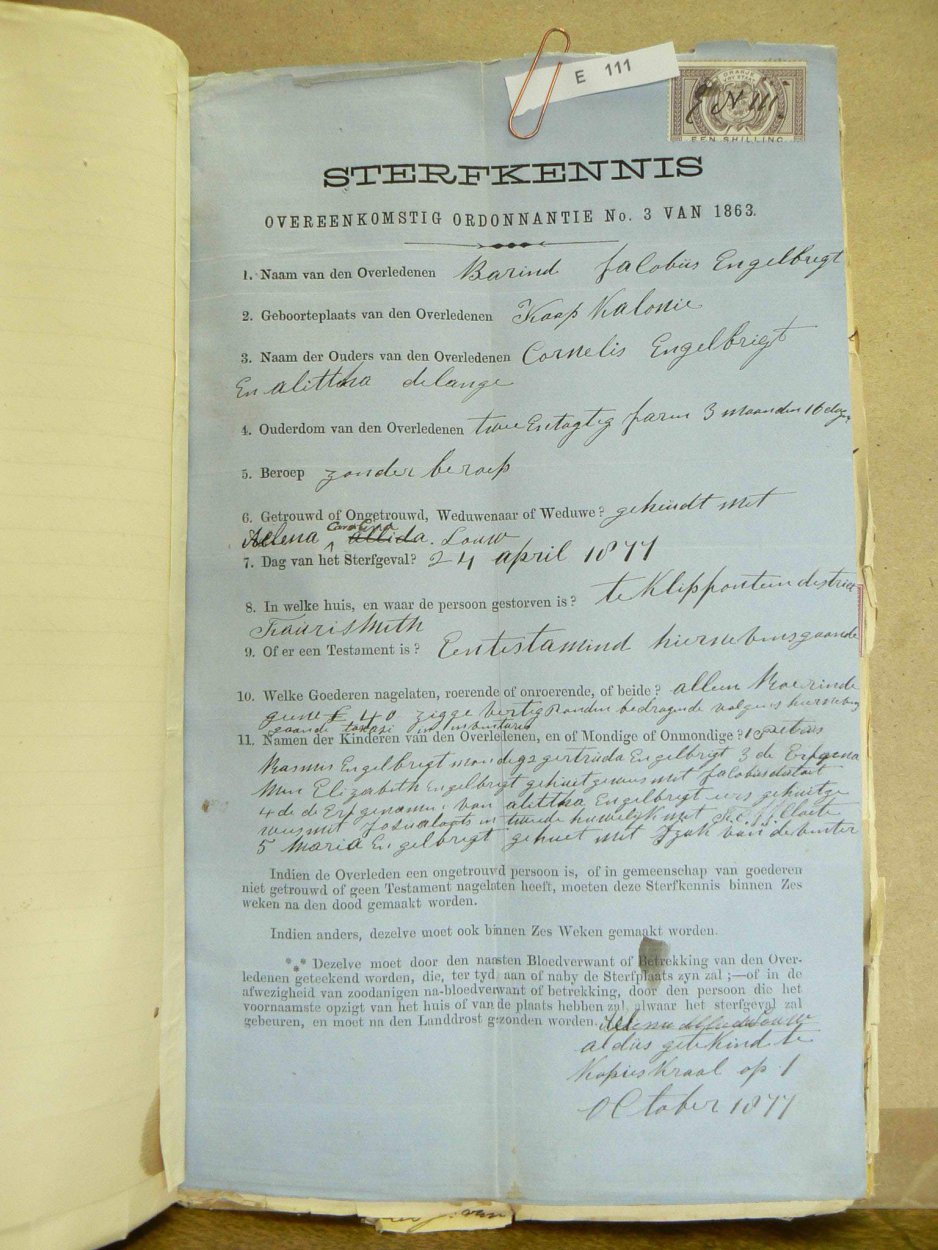 E 111
ORANJE
VRY STAAT
E N 111
EEN SHILLING
STERFKENNIS
OVEREENKOMSTIG ORDONNANTIE No. 3 VAN 1863.
1. Naam van den Overledenen Barind Jacobus Engelbregt
2. Geboorteplaats van den Overledenen Kaap Kalonie
3. Naam der Ouders van den Overledenen Cornelis Engelbrigt
En alittha delange
4. Ouderdom van den Overledenen twee Entagtig jaren 3 maanden 16 dagen
5. Beroep zonder beroep
6. Getrouwd of Ongetrouwd, Weduwenaar of Weduwe? gehuidt met
Carolina
Helena allida. Louw
7. Dag van het Sterfgeval? 24 april 1877
8. In welke huis, en waar de persoon gestorven is? te Klipfontein district
Faurismith
9. Of er een Testament is? Een testamind hiernebensgaande
10. Welke Goederen nagelaten, roerende of onroerende, of beide? alleen Roerinde
£ 40 zigge vertig Ponden bedragende volgens hierneben
gaande inventaris
11. Namen der Kinderen van den Overledenen, en of Mondige of Onmondige? 1 Petrus
Rasmus Engelbregt mondig 2 gertruida Engelbregt 3 de Erfgena
men Elizabeth Engelbregt gehuit gewees met Jacobus
4 de de Erfgenamen van alettha Engelbregt eers gehuit ge
wees met in tweede huwelyk met
5 Maria Engelbregt gehuet met Izak van der
Indien de Overleden een ongetrouwd persoon is, of in gemeenschap van goederen
niet getrouwd of geen Testament nagelaten heeft, moeten deze Sterfkennis binnen Zes
weken na den dood gemaakt worden.
Indien anders, dezelve moet ook binnen Zes Weken gemaakt worden.
*** Dezelve moet door den naasten Bloedverwant of Betrekking van den Over-
ledenen geteekend worden, die, ter tyd aan of naby de Sterfplaats zyn zal ;—of in de
afwezigheid van zoodanigen na-bloedverwant of betrekking, door den persoon die het
voornaamste opzigt van het huis of van de plaats hebben zal, alwaar het sterfgeval zal
gebeuren, en moet na den Landdrost gezonden worden.
aldus getekind te
Kopieskraal op 1
October 1877